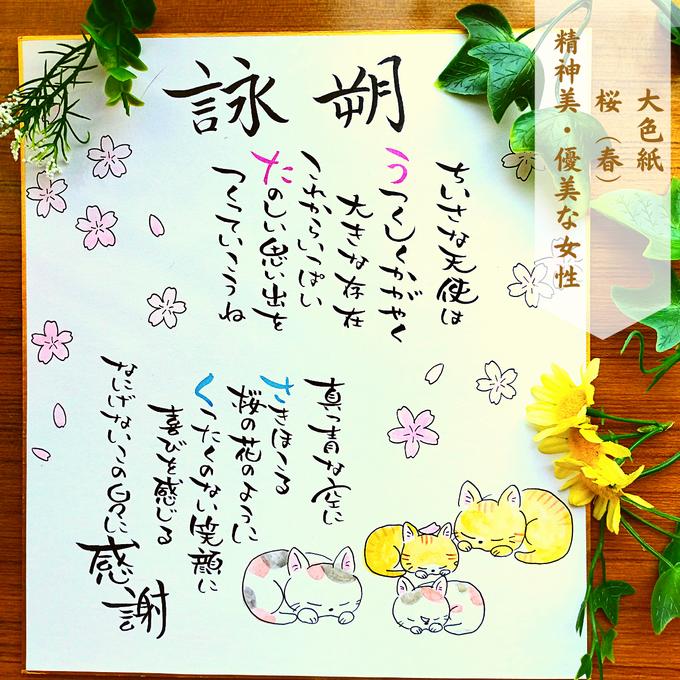 大色紙
桜（春）
精神美・優美な女性
詠 朔
ちいさな天使は
うつくしくかがやく
大きな存在
これからいっぱい
たのしい思い出を
つくっていこうね
真っ青な空に
さきほこる
桜の花のように
くったくのない笑顔に
喜びを感じる
なにげないこの日々に
感謝